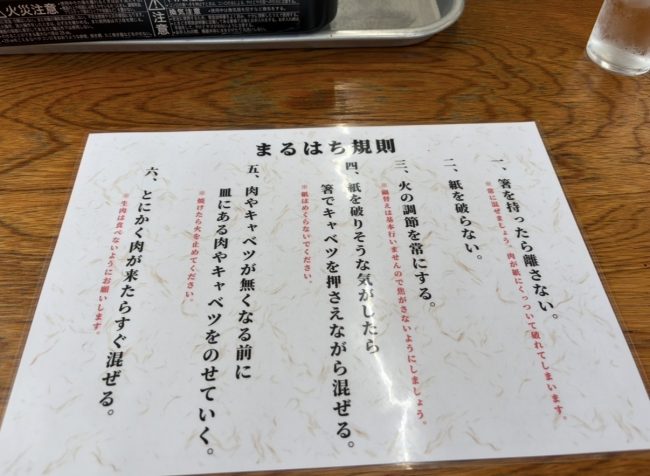 火災注意
注意
まるはち規則
一、箸を持ったら離さない。
※常に混ぜましょう。肉が紙にくっついて破れてしまいます。
二、紙を破らない。
三、火の調節を常にする。
※鍋替えは基本行いませんので焦がさないようにしましょう。
四、紙を破りそうな気がしたら
箸でキャベツを押さえながら混ぜる。
※紙はめくらないでください。
五、肉やキャベツが無くなる前に
皿にある肉やキャベツをのせていく。
※焼けたら火を止めてください。
六、とにかく肉が来たらすぐ混ぜる。
※生肉は食べないようにお願いします。